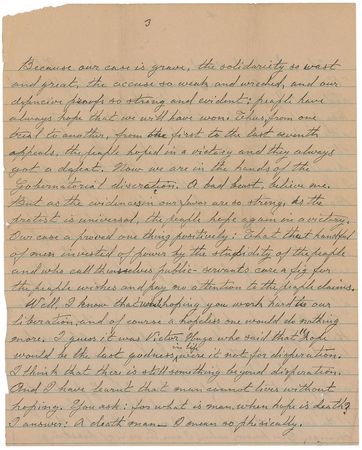 3
Because our case is grave, the solidariety so wast
and great, the accuse so weak and wreched, and our
defencive proofs so strong and evident; people have
always hope that we will have won. Thus, from one
trial to another, from the first to the last seventh
appeals, the people hoped in a victory and they always
got a defeat. Now we are in the hands of the
Gobernatorial discration. A bad boat, believe me.
But as the evidences in our favor are so strong, as the
protest is universal, the people hope again in a victory.
Our case a proved one thing positively: That that handful
of men invested of power by the stupidity of the people
and who call themselves public-servants care a fig for
the people wishes and pay no attention to the people claims.
Well, I know that hoping you work hard in our
liberation, and of course a hopeless one would do nothing
more. I guess it was Victor Hugo who said that hope
would be the last godness in life, were it not for disperation.
I think that there is still something beyond disperation.
And I have learnt that man cannot lives without
hoping. You ask: for what is man when hope is death?
I answer: A death man — I mean so phisically.